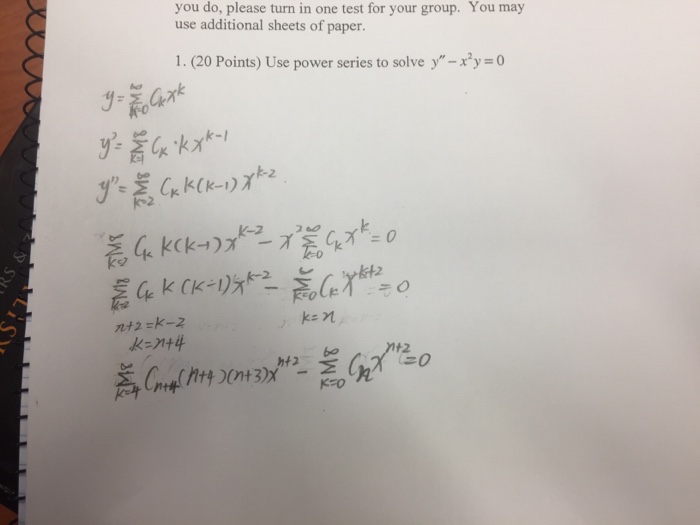 you do, please turn in one test for your group. You may
use additional sheets of paper.
1. (20 Points) Use power series to solve y″ – x²y = 0
y = ∑_{k=0}^{∞} C_k x^k
y' = ∑_{k=1}^{∞} C_k · k x^{k-1}
y" = ∑_{k=2}^{∞} C_k k(k-1) x^{k-2}
∑_{k=2}^{∞} C_k k(k-1) x^{k-2} - x² ∑_{k=0}^{∞} C_k x^k = 0
∑_{k=2}^{∞} C_k k(k-1) x^{k-2} - ∑_{k=0}^{∞} C_k x^{k+2} = 0
n+2 = k-2 k=n
k=n+4
∑_{k=4}^{∞} C_{n+4} (n+4)(n+3) x^{n+2} - ∑_{k=0}^{∞} C_n x^{n+2} = 0